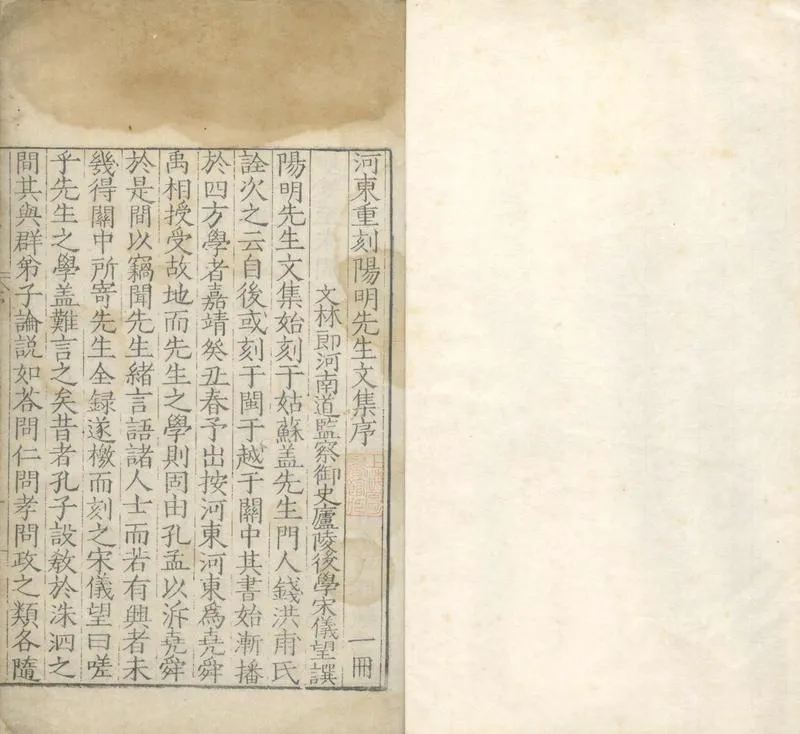 河東重刻陽明先生文集序
一冊
文林郎河南道監察御史廬陵後學宋儀望譔
陽明先生文集始刻于姑蘇盖先生門人錢洪甫氏
詮次之云自後或刻于閩于越于關中其書始漸播
於四方學者嘉靖癸丑春予出按河東河東爲堯舜
禹相授受故地而先生之學則固由孔孟以泝堯舜
於是間以竊聞先生緒言語諸人士而若有興者未
幾得關中所寄先生全録遂檄而刻之宋儀望曰嗟
乎先生之學盖難言之矣昔者孔子設教於洙泗之
間其與群弟子論説如荅問仁問孝問政之類各隨